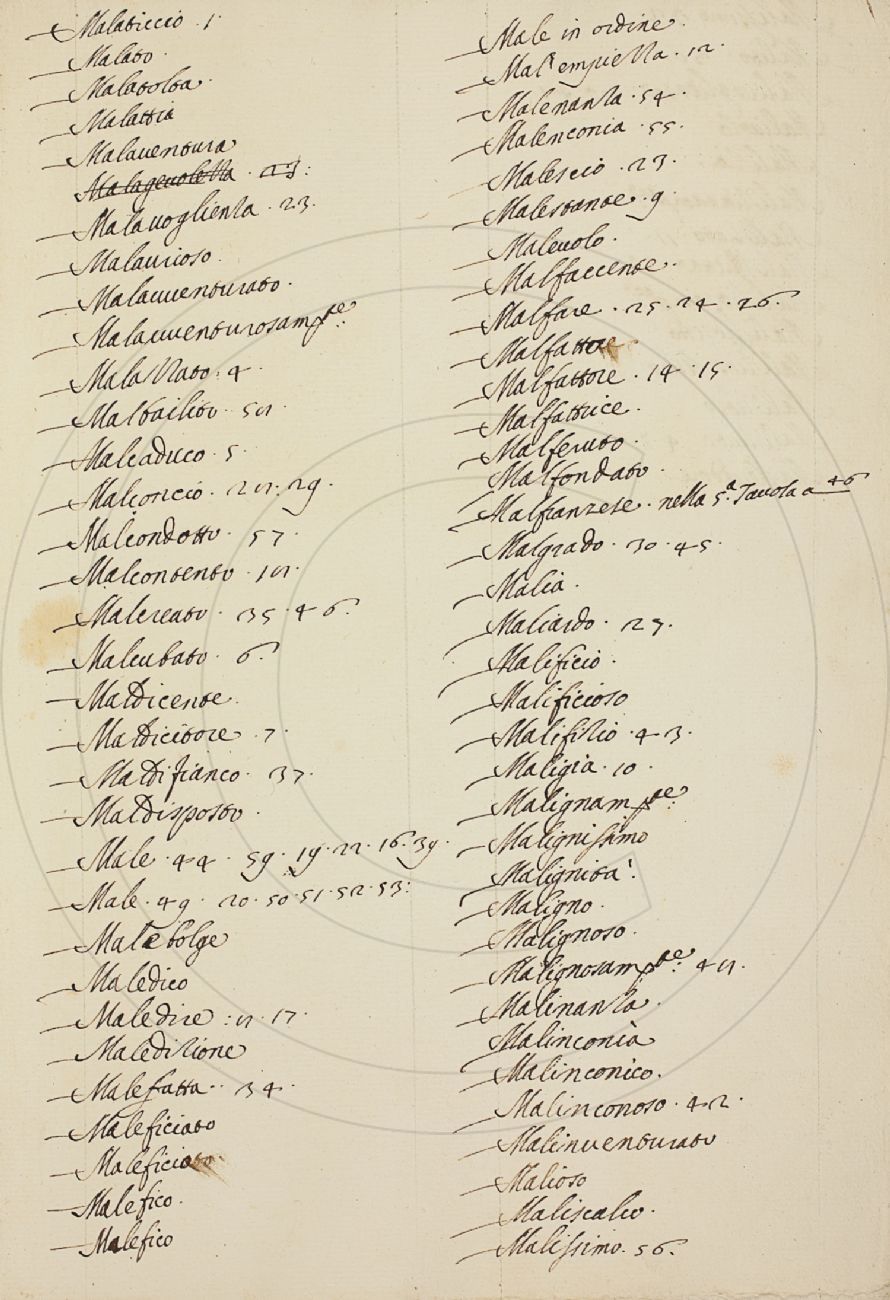 Malaticcio · 1·
Malato ·
Malatolta ·
Malattia
Malauentura
Malageuolezza · 23 :
Malauoglienza · 23 ·
Malaurioso ·
Malauuenturato ·
Malauuenturosamte :
Malazzato : 4 ·
Malbailito ·
Malcaduco · 5 ·
Malconcio · 29 ·
Malcondotto · 57 ·
Malcontento ·
Malcreato · 35 · 46 ·
Malcubato · 6 ·
Maldicente ·
Maldicitore · 7 ·
Maldifianco · 37 ·
Maldisposto ·
Male · 44 · 59 · 19 · 22 · 16 · 39 ·
Male · 49 · 20 · 50 · 51 · 52 · 53 :
Malebolge
Maledico
Maledire : 17 ·
Maledizione
Malefatta · 34 ·
Maleficiato
Maleficioso ·
Malefico ·
Malefico
Male in ordine ·
Mal'empiezza · 12 ·
Malenanza · 54 ·
Malenconia · 55 ·
Malescio · 23 ·
Malestante · 9 ·
Maleuolo ·
Malfaccente ·
Malfare · 25 · 24 · 26 ·
Malfattore
Malfattore · 14 · 15 ·
Malfattrice ·
Malferuto ·
Malfondato ·
Malfranzese · nella 5.a Tauola a 46
Malgrado · 30 · 45 ·
Malia ·
Maliardo · 27 ·
Malificio ·
Malificioso
Malifizio · 43 ·
Maligia · 10 ·
Malignamte :
Malignissimo
Malignità ·
Maligno ·
Malignoso ·
Malignosamte :
Malinanza ·
Malinconia
Malinconico ·
Malinconoso · 42 ·
Malinuenturato
Malioso
Maliscalco ·
Malissimo · 56 ·